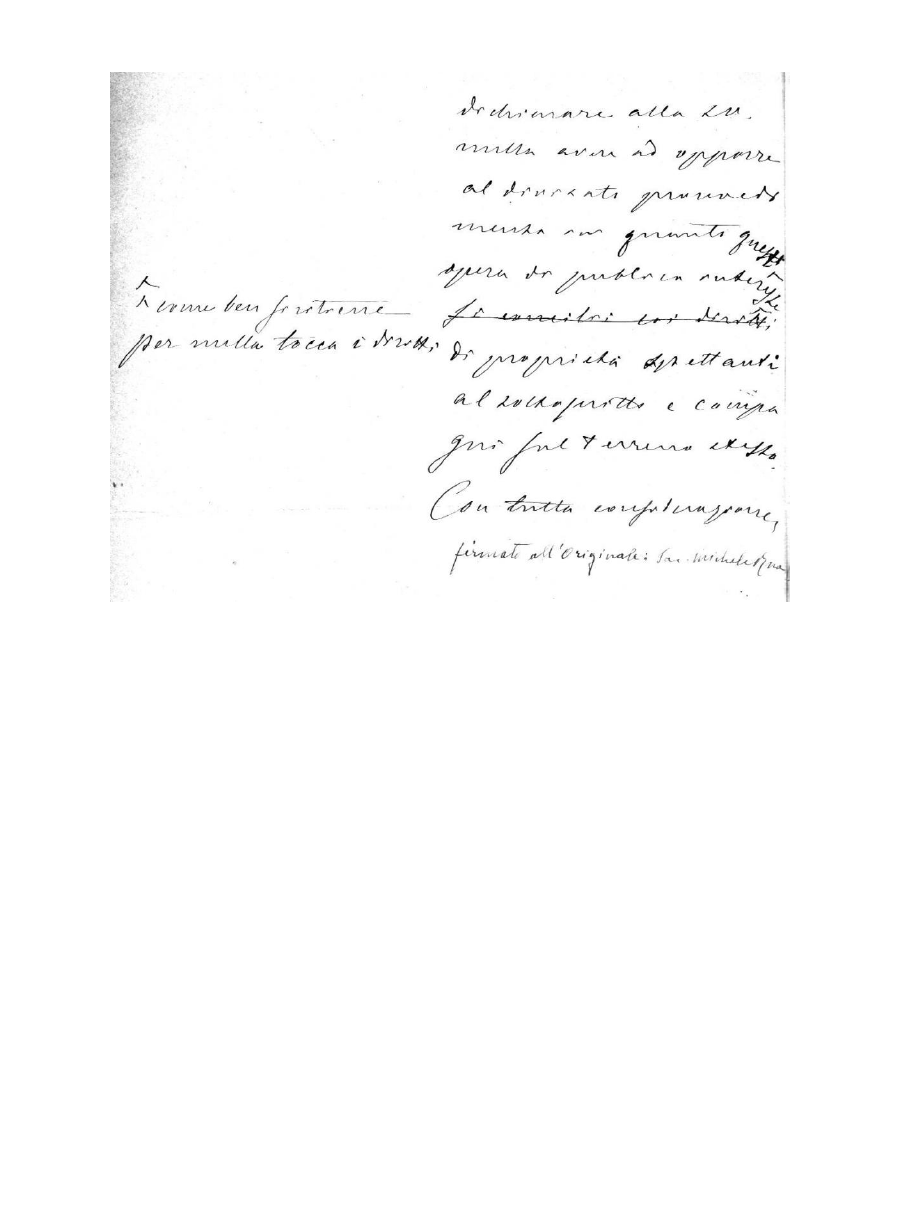 dichiarare alla S.V.
nulla avere ad opporre
al divisato provvedi
mento in quanto quest
opera di publico interesse
^ come ben si ritiene
per nulla tocca i diritti
si concilii coi diritti
di proprietà spettanti
al sottoscritto e compa
gni sul terreno stesso.
Con tutta considerazione,
firmato all'Originale: Sac. Michele Rua